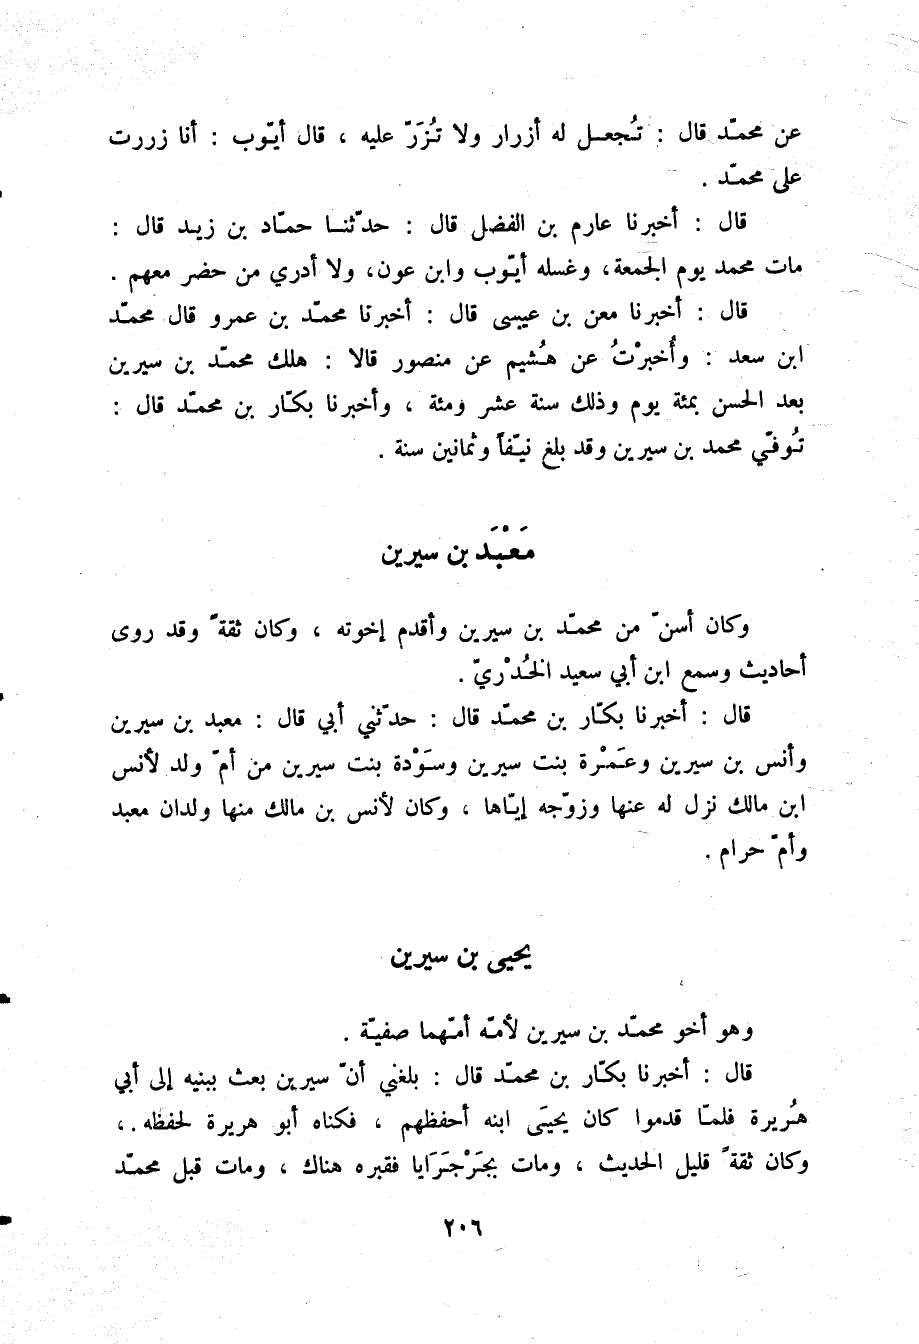 عن محمّد قال : تُجعل له أزرار ولا تُزَرّ عليه ، قال أيّوب : أنا زررت
على محمّد .
قال : أخبرنا عارم بن الفضل قال : حدّثنا حمّاد بن زيد قال :
مات محمد يوم الجمعة، وغسله أيّوب وابن عون، ولا أدري من حضر معهم .
قال : أخبرنا معن بن عيسى قال : أخبرنا محمّد بن عمرو قال محمّد
ابن سعد : وأُخبرْتُ عن هُشيم عن منصور قالا : هلك محمّد بن سيرين
بعد الحسن بمئة يوم وذلك سنة عشر ومئة ، وأخبرنا بكّار بن محمّد قال :
تُوفّي محمد بن سيرين وقد بلغ نيّفاً وثمانين سنة .
مَعْبَد بن سيرين
وكان أسنّ من محمّد بن سيرين وأقدم إخوته ، وكان ثقةً وقد روى
أحاديث وسمع ابن أبي سعيد الخُدْريّ .
قال : أخبرنا بكّار بن محمّد قال : حدّثني أبي قال : معبد بن سيرين
وأنس بن سيرين وعَمْرة بنت سيرين وسَوْدة بنت سيرين من أمّ ولد لأنس
ابن مالك نزل له عنها وزوّجه إيّاها ، وكان لأنس بن مالك منها ولدان معبد
وأمّ حرام .
يحيى بن سيرين
وهو أخو محمّد بن سيرين لأمّه أمّهما صفيّة .
قال : أخبرنا بكّار بن محمّد قال : بلغني أنّ سيرين بعث ببنيه إلى أبي
هُريرة فلمّا قدموا كان يحيَى ابنه أحفظهم ، فكناه أبو هريرة لحفظه .،
وكان ثقةً قليل الحديث ، ومات بجَرْجَرَايا فقبره هناك ، ومات قبل محمّد
٢٠٦